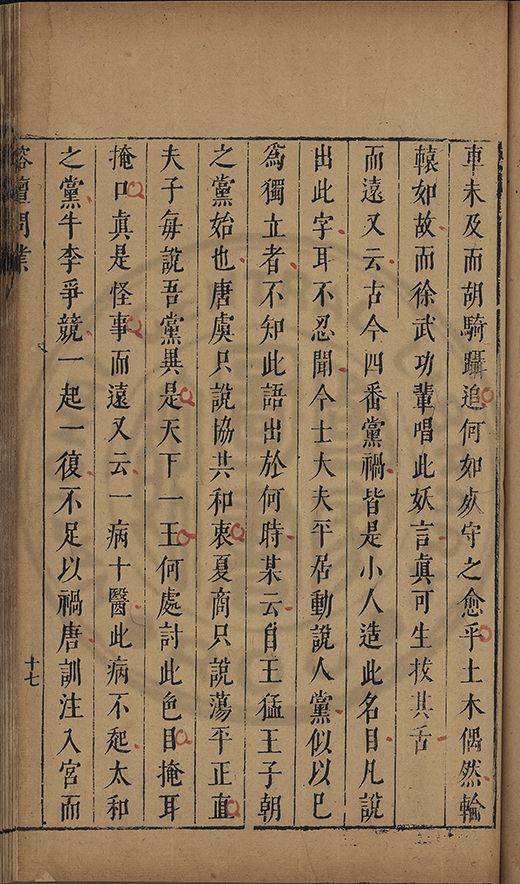 車未及而胡騎躡追何如欽守之愈乎土木偶然輪
轅如故而徐武功輩唱此妖言眞可生拔其舌
而遠又云古今四番黨禍皆是小人造此名目凡說
出此字耳不忍聞今士大夫平居動說人黨似以巳
為獨立者不知此語出於何時某云自王猛王子朝
之黨始也唐虞只說協共和衷夏商只說蕩平正直
夫子每說吾黨異是天下一王何處討此色目掩耳
掩口眞是怪事而遠又云一病十醫此病不起太和
之黨牛李爭競一起一復不足以禍唐訓注入宮而
榕壇問業
十七